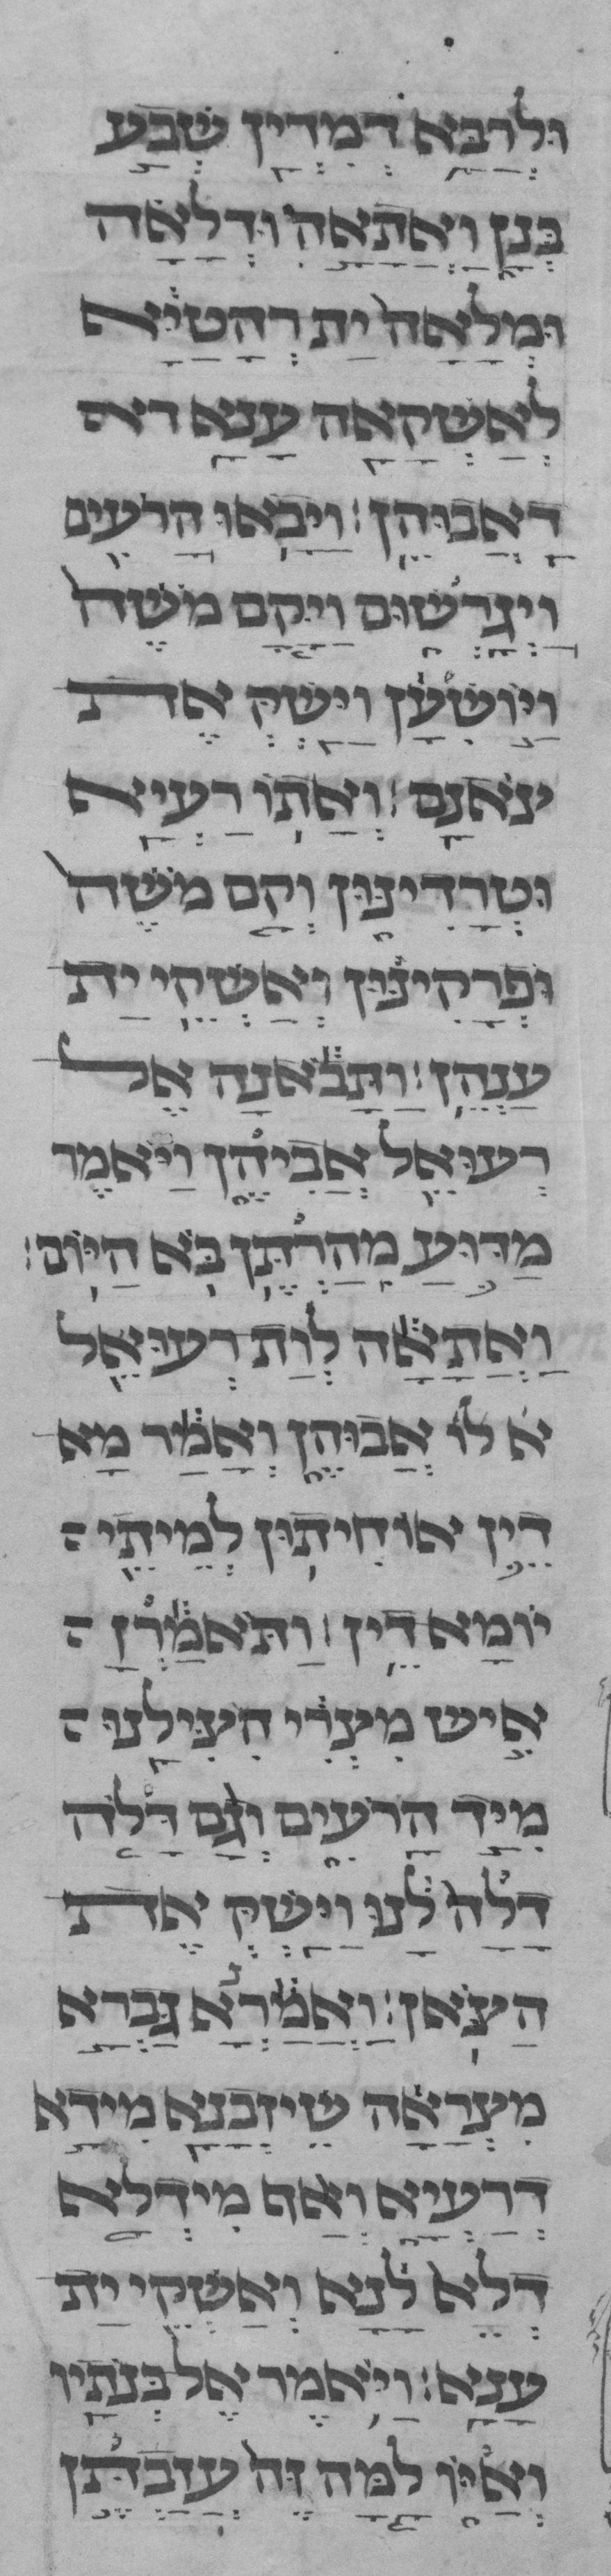 ולרבא דמדין שבע
בנן ואתאה ודלאה
ומלאה ית רהטיא
לאשקאה ענא דא
דאבוהן׃ ויבאו הרעים
ויגרשום ויקם משה
ויושען וישק את
צאנם׃ ואתו רעיא
וטרדינון וקם משה
ופרקינון ואשקי ית
ענהן׃ ותבאנה אל
רעואל אביהן ויאמר
מדוע מהרתן בא היום׃
ואתאה לות רעואל
אבוהן ואמר מא
דין אוחיתון למיתי
יומא דין׃ ותאמרן
איש מצרי הצילנו
מיד הרעים וגם דלה
דלה לנו וישק את
הצאן׃ ואמרא גברא
מצראה שיזבנא מידא
דרעיא ואף מידלא
דלא לנא ואשקי ית
ענא׃ ויאמר אל בנתיו
ואיו למה זה עזבתן